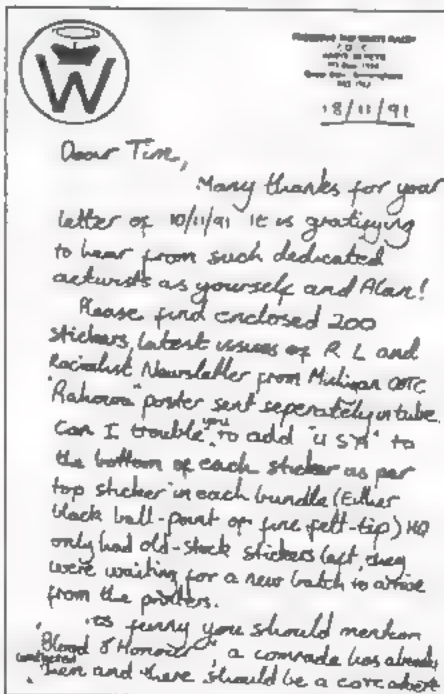 W
18/11/91
Dear Tim,
Many thanks for your
letter of 10/11/91 it is gratifying
to hear from such dedicated
activists as yourself and Alan!
Please find enclosed 200
stickers, latest issues of R L and
Racialist Newsletter from Milligan COTC
"Rahowa" poster sent seperately in tube.
Can I trouble you to add "USA" to
the bottom of each sticker as per
top sticker in each bundle (Either
black ball-point or fine felt-tip) HQ
only had old-stock stickers left, they
were waiting for a new batch to arrive
from the printers.
its funny you should mention
"Blood & Honour", a comrade has already
contacted them and there should be a COTC advert